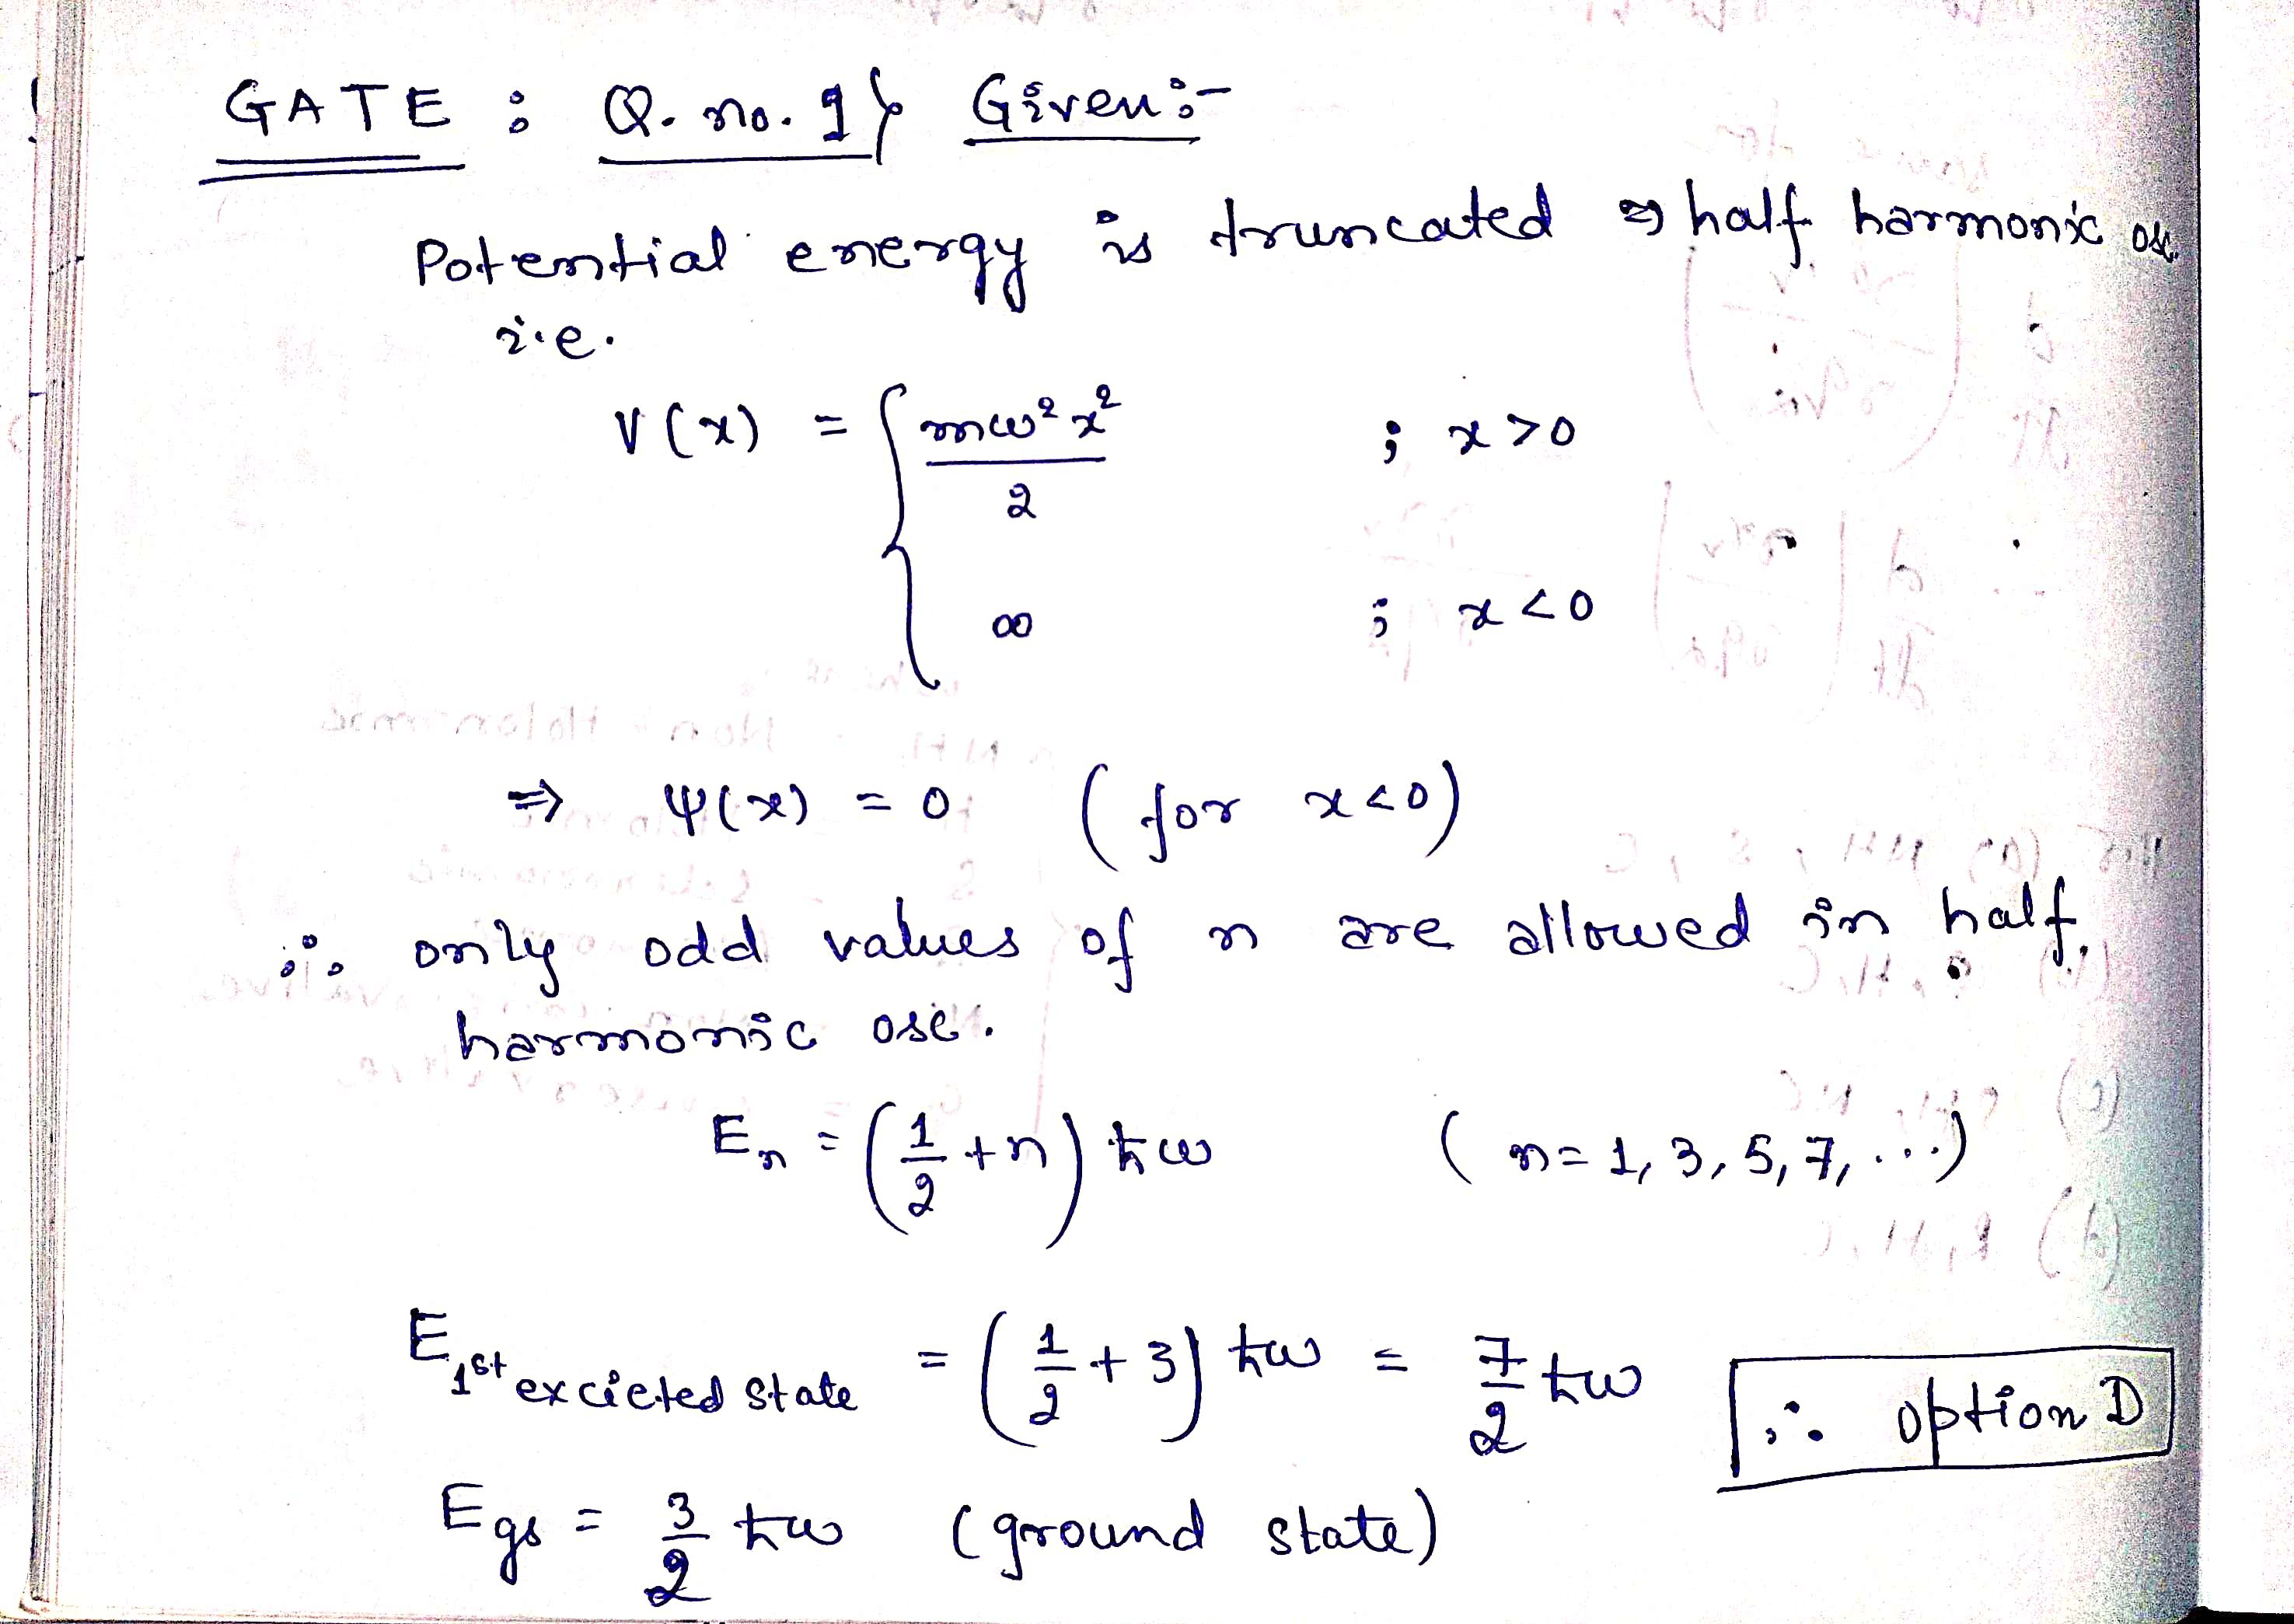 GATE : Q. no. 9) Given :-
Potential energy is truncated ⇒ half harmonic osc.
i.e.
V(x) = { mω²x²/2 ; x>0
∞ ; x<0
⇒ ψ(x) = 0 (for x<0)
∴ only odd values of n are allowed in half
harmonic osc.
Eₙ = (1/2 + n) ħω (n = 1, 3, 5, 7, ...)
E 1st excieted state = (1/2 + 3) ħω = 7/2 ħω ∴ option D
E gs = 3/2 ħω (ground state)